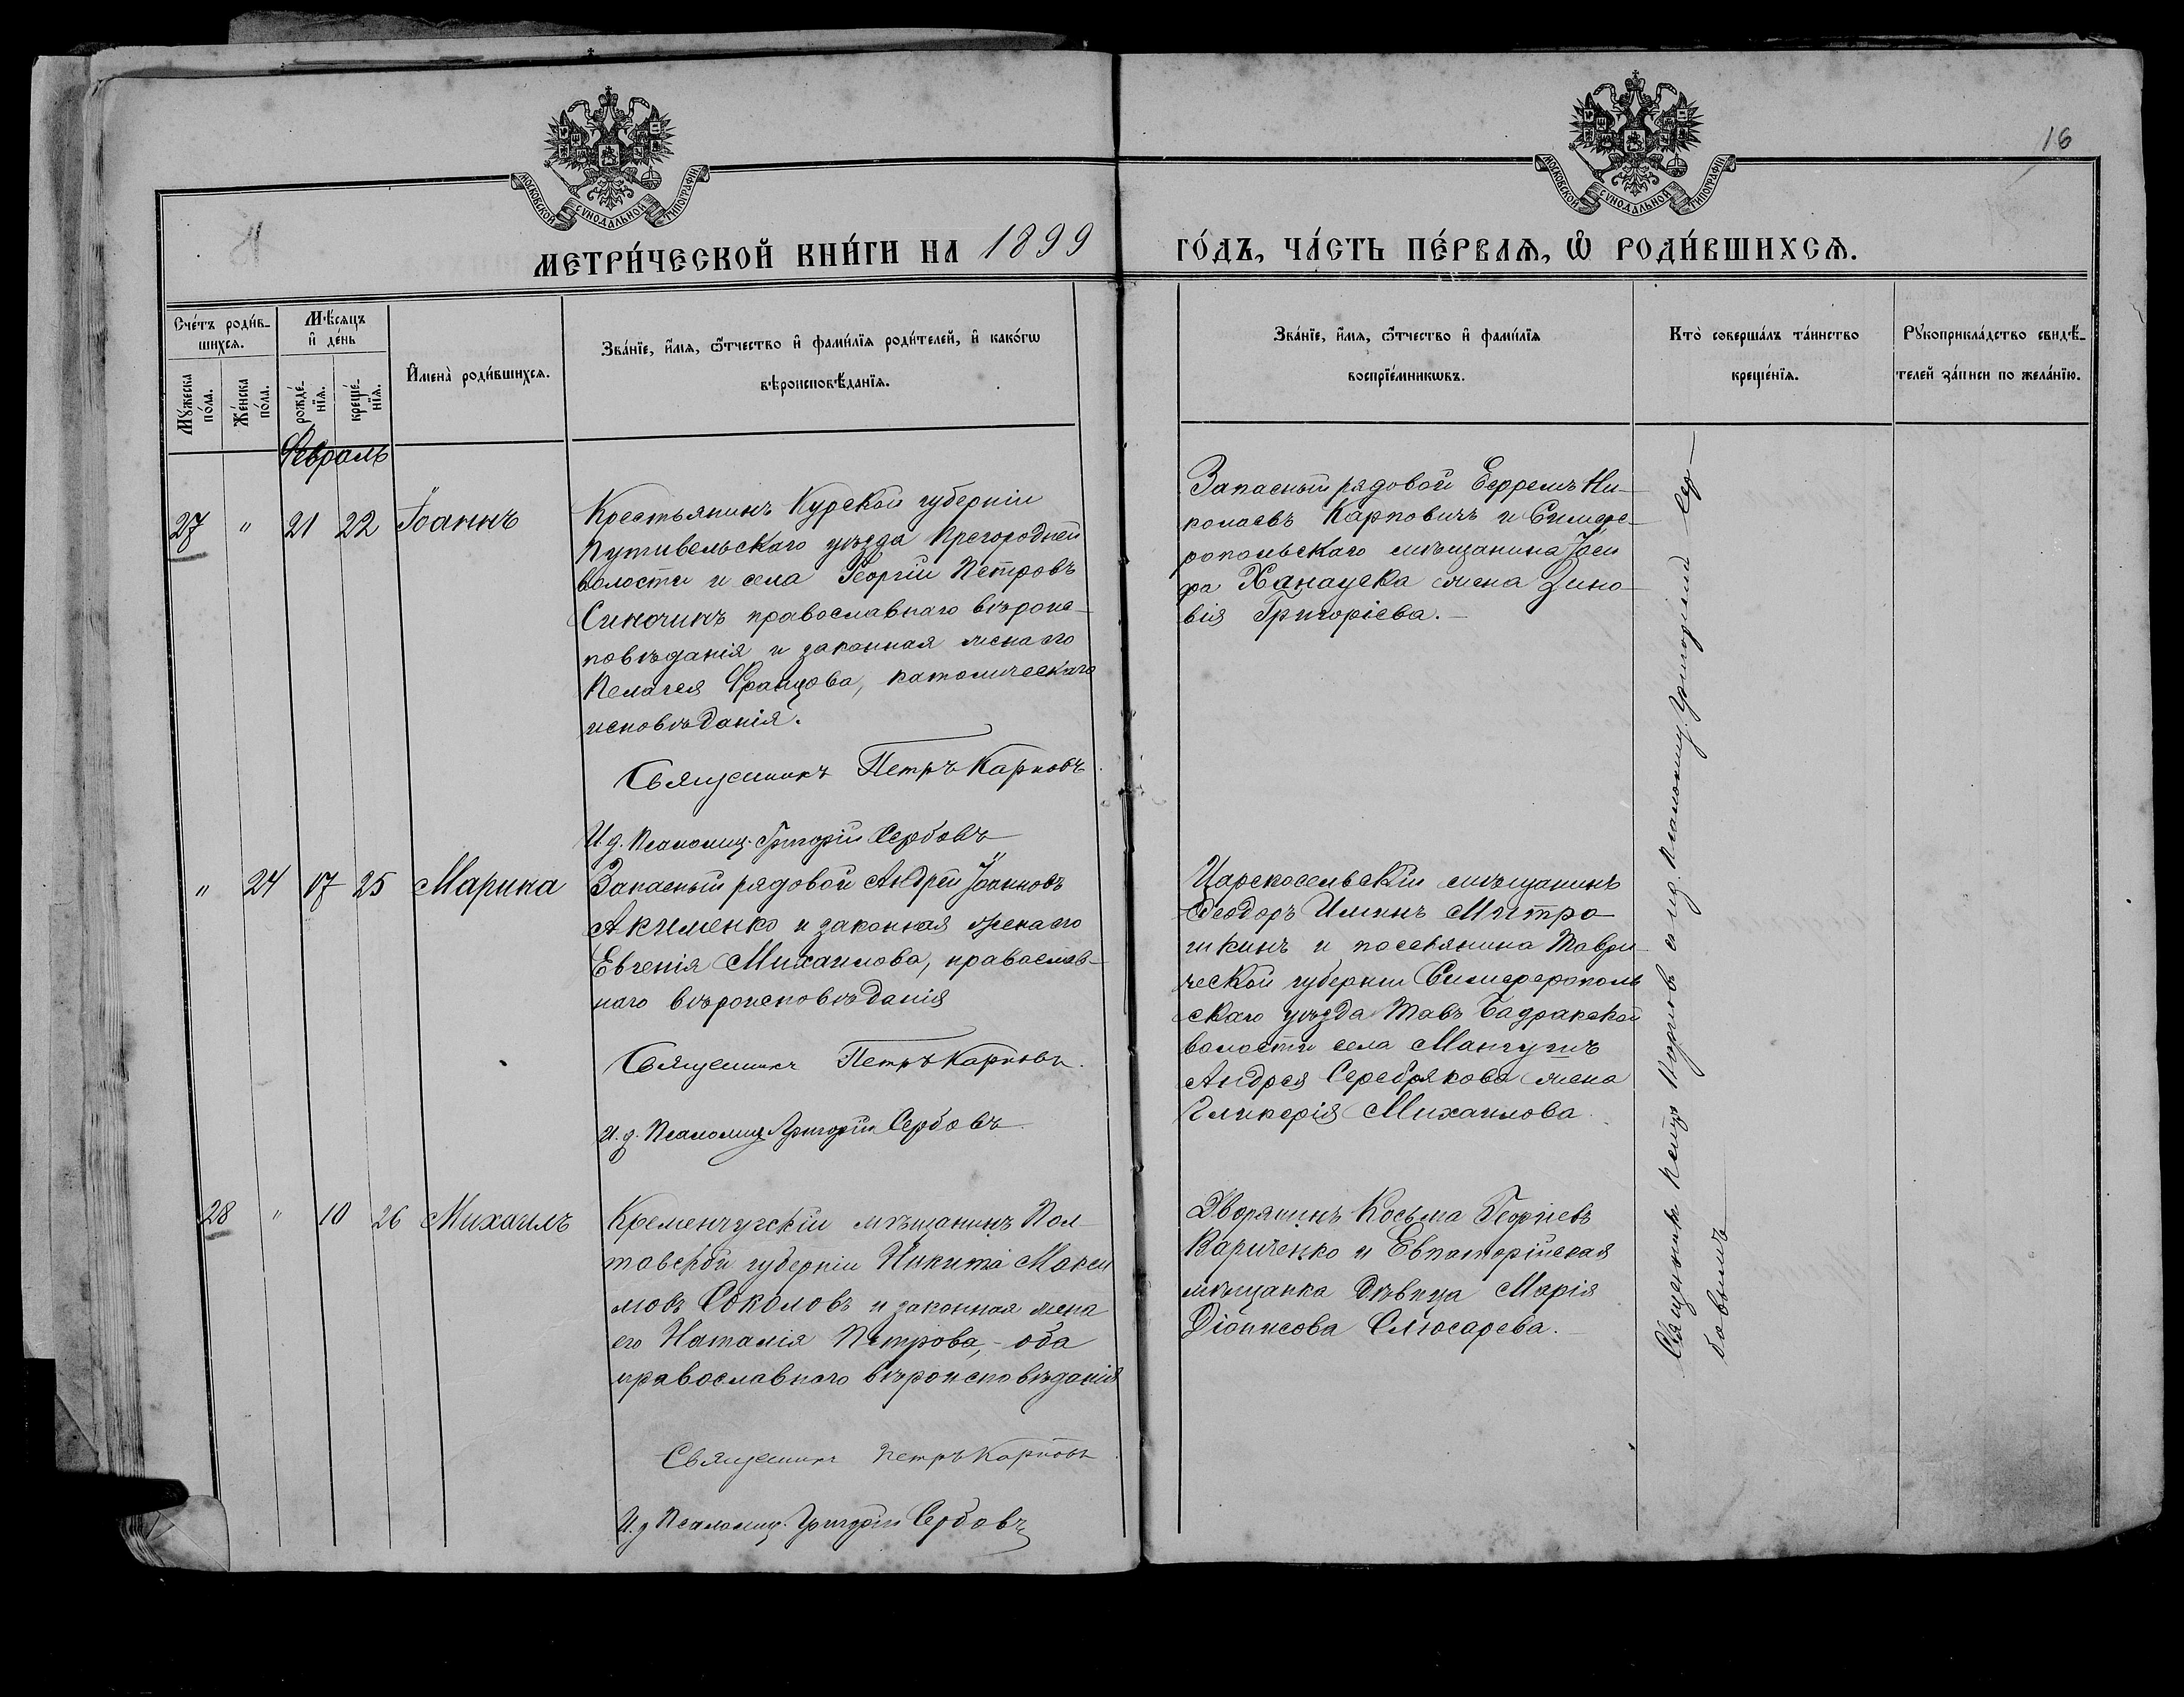 16
МОСКОВСКОЙ СѴНОДАЛЬНОЙ ТИПОГРАФІИ
МОСКОВСКОЙ СѴНОДАЛЬНОЙ ТИПОГРАФІИ
МЕТРИ́ЧЕСКОЙ КНИ́ГИ НА 1899
ГО́ДЪ, ЧА́СТЬ ПЕ́РВАѦ, Ѡ РОДИ́ВШИХСѦ.
Сче́тъ роди́в-
шихсѧ.
Мѣ́сяцъ
и҆ де́нь
Мꙋ́жеска
по́ла.
Же́нска
по́ла.
рожде́-
нїѧ.
креще́-
нїѧ.
И҆мена̀ роди́вшихсѧ.
Зва́нїе, и҆́мѧ, ѻ҆́тчество и҆ фами́лїѧ роди́телей, и҆ како́гѡ
вѣроисповѣ́данїѧ.
Зва́нїе, и҆́мѧ, ѻ҆́тчество и҆ фами́лїѧ
воспрїе́мникѡвъ.
Кто̀ соверша́лъ та́инство
креще́нїѧ.
Рꙋкоприкла́дство свидѣ́-
телей за́писи по жела́нїю.
Февраль
27 " 21 22 Іоаннъ
Крестьянинъ Курской губерніи
Путивельскаго уѣзда Пригородней
волости и села Георгій Петровъ
Синочинъ православнаго вѣроис-
повѣданія и законная жена его
Пелагея Францова, католическаго
исповѣданія.
Священникъ Петръ Карповъ.
И д. Псаломщ. Григорій Сербовъ
Запасный рядовой Ефремъ Ни-
колаевъ Карповичъ и Симфе-
ропольскаго мѣщанина Іоси
фа Ханацека жена Зино-
вія Григоріева.
" 24 17 25 Марина
Запасный рядовой Андрей Іоанновъ
Акименко и законная жена его
Евгенія Михаилова, православ-
наго вѣроисповѣданія
Священникъ Петръ Карповъ.
И. д. Псаломщ. Григорій Сербовъ
Царскосельскій мѣщанинъ
Феодоръ Ильинъ Митро-
шкинъ и поселянина Таври-
ческой губерніи Симферополь
скаго уѣзда Тавъ Бадракской
волости села Мангушъ
Андрея Серебрякова жена
Гликерія Михаилова.
28 " 10 26 Михаилъ
Кременчугскій мѣщанинъ Пол-
тавской губерніи Никита Макси
мовъ Соколовъ и законная жена
его Наталія Петрова, - оба
православнаго вѣроисповѣданія
Священникъ Петръ Карповъ.
И. д Псаломщ. Григорій Сербовъ
Дворянинъ Косьма Георгіевъ
Вариченко и Евпаторійская
мѣщанка дѣвица Марія
Діонисова Слюсарева.
Священникъ Петръ Карповъ съ и. д. псаломщ. Григоріемъ Сер-
бовымъ